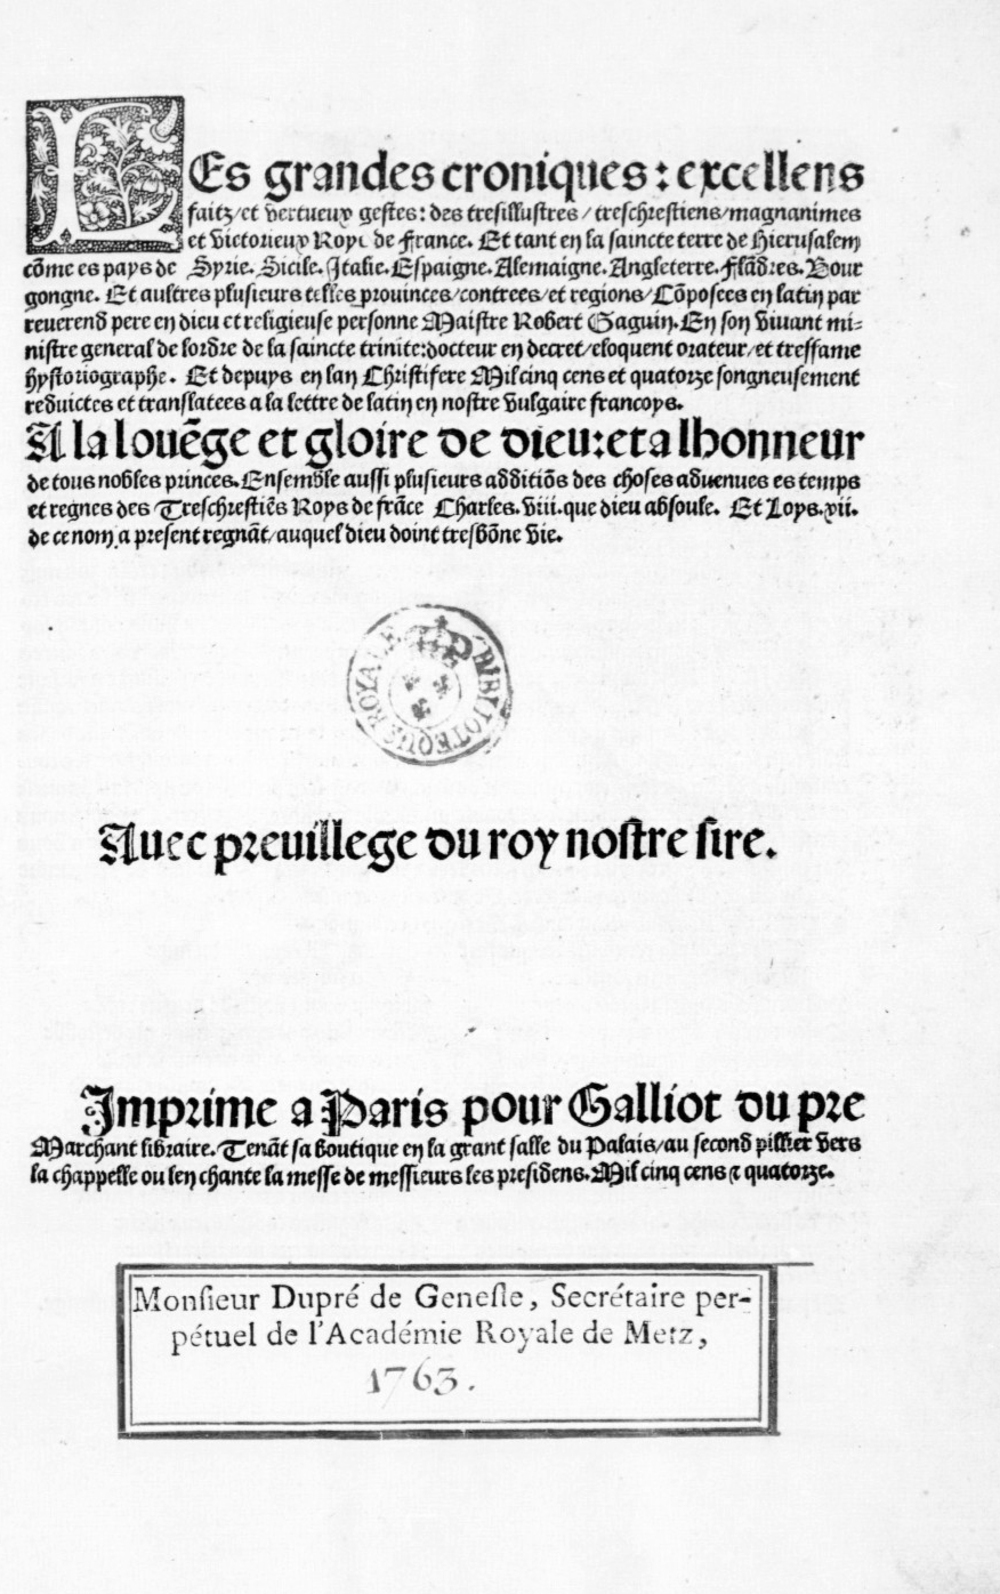 LEs grandes croniques: excellens
faitz/et vertueux gestes: des tresillustres/ treschrestiens/magnanimes
et victorieux Roys de France. Et tant en la saincte terre de Hierusalem
cõme es pays de Syrie. Sicile. Italie. Espaigne. Alemaigne. Angleterre. Flãdres. Bour
gongne. Et aultres plusieurs telles prouinces/contrees/et regions/Cõposees en latin par
reuerend pere en dieu et religieuse personne Maistre Robert Gaguin. En son viuant mi-
nistre general de lordre de la saincte trinite:docteur en decret/eloquent orateur/et tresfame
hystoriographe. Et depuys en lan Christifere Mil cinq cens et quatorze songneusement
reduictes et translatees a la lettre de latin en nostre vulgaire francoys.
A la louẽge et gloire de dieu:et a lhonneur
de tous nobles princes. Ensemble aussi plusieurs additiõs des choses aduenues es temps
et regnes des Treschrestiẽs Roys de frãce Charles. viii. que dieu absoule. Et Loys. xii.
de ce nom a present regnãt/auquel dieu doint tresbõne vie.
BIBLIOTEQUE ROYALE
Auec preuillege du roy nostre sire.
Imprime a Paris pour Galliot du pre
Marchant libraire. Tenãt sa boutique en la grant salle du Palais/au second pillier vers
la chappelle ou len chante la messe de messieurs les presidens. Mil cinq cens ⁊ quatorze.
Monsieur Dupré de Geneste, Secrétaire per-
pétuel de l'Académie Royale de Metz,
1763.